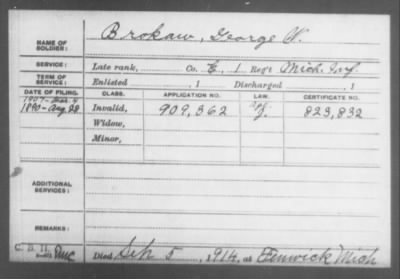 NAME OF SOLDIER: Brokaw, George W.
SERVICE: Late rank, Co. E, 1 Reg't Mich. Inf.
TERM OF SERVICE: Enlisted , 1 Discharged , 1
DATE OF FILING. CLASS. APPLICATION NO. LAW. CERTIFICATE NO.
1907
1890-Aug 28 Invalid, 909,362 J. 823,832
Widow,
Minor,
ADDITIONAL SERVICES:
REMARKS:
C. B. H.
Died Sep 5, 1914, at Fenwick Mich